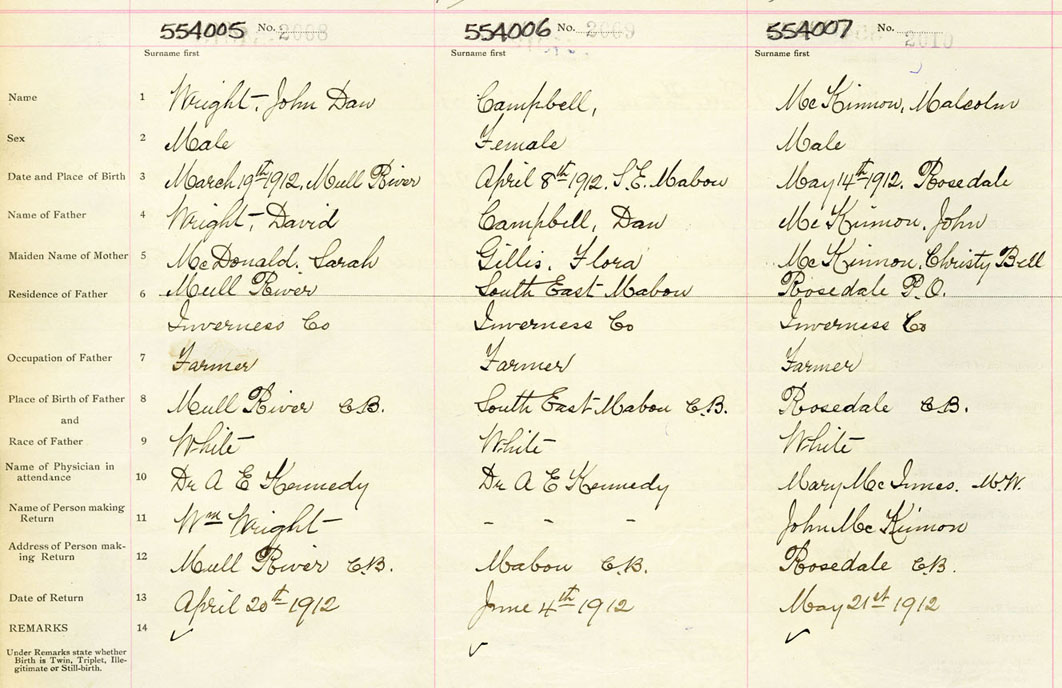 554005 No. 2008 554006 No. 2009 554007 No. 2010
Surname first Surname first Surname first
Name 1 Wright, John Dan Campbell, McKinnon, Malcolm
Sex 2 Male Female Male
Date and Place of Birth 3 March 19th 1912, Mull River April 8th 1912. S.E. Mabou May 14th 1912. Rosedale
Name of Father 4 Wright, David Campbell, Dan McKinnon, John
Maiden Name of Mother 5 McDonald. Sarah Gillis. Flora McKinnon, Christy Bell
Residence of Father 6 Mull River South East Mabou Rosedale P.O.
Inverness Co Inverness Co Inverness Co
Occupation of Father 7 Farmer Farmer Farmer
Place of Birth of Father 8 Mull River C.B. South East Mabou C.B. Rosedale C.B.
and
Race of Father 9 White White White
Name of Physician in
attendance 10 Dr A E Kennedy Dr A E Kennedy Mary McInnes. M.W.
Name of Person making
Return 11 Wm Wright - - - John McKinnon
Address of Person mak-
ing Return 12 Mull River C.B. Mabou C.B. Rosedale C.B.
Date of Return 13 April 20th 1912 June 4th 1912 May 21st 1912
REMARKS 14 ✓ ✓ ✓
Under Remarks state whether
Birth is Twin, Triplet, Ille-
gitimate or Still-birth.